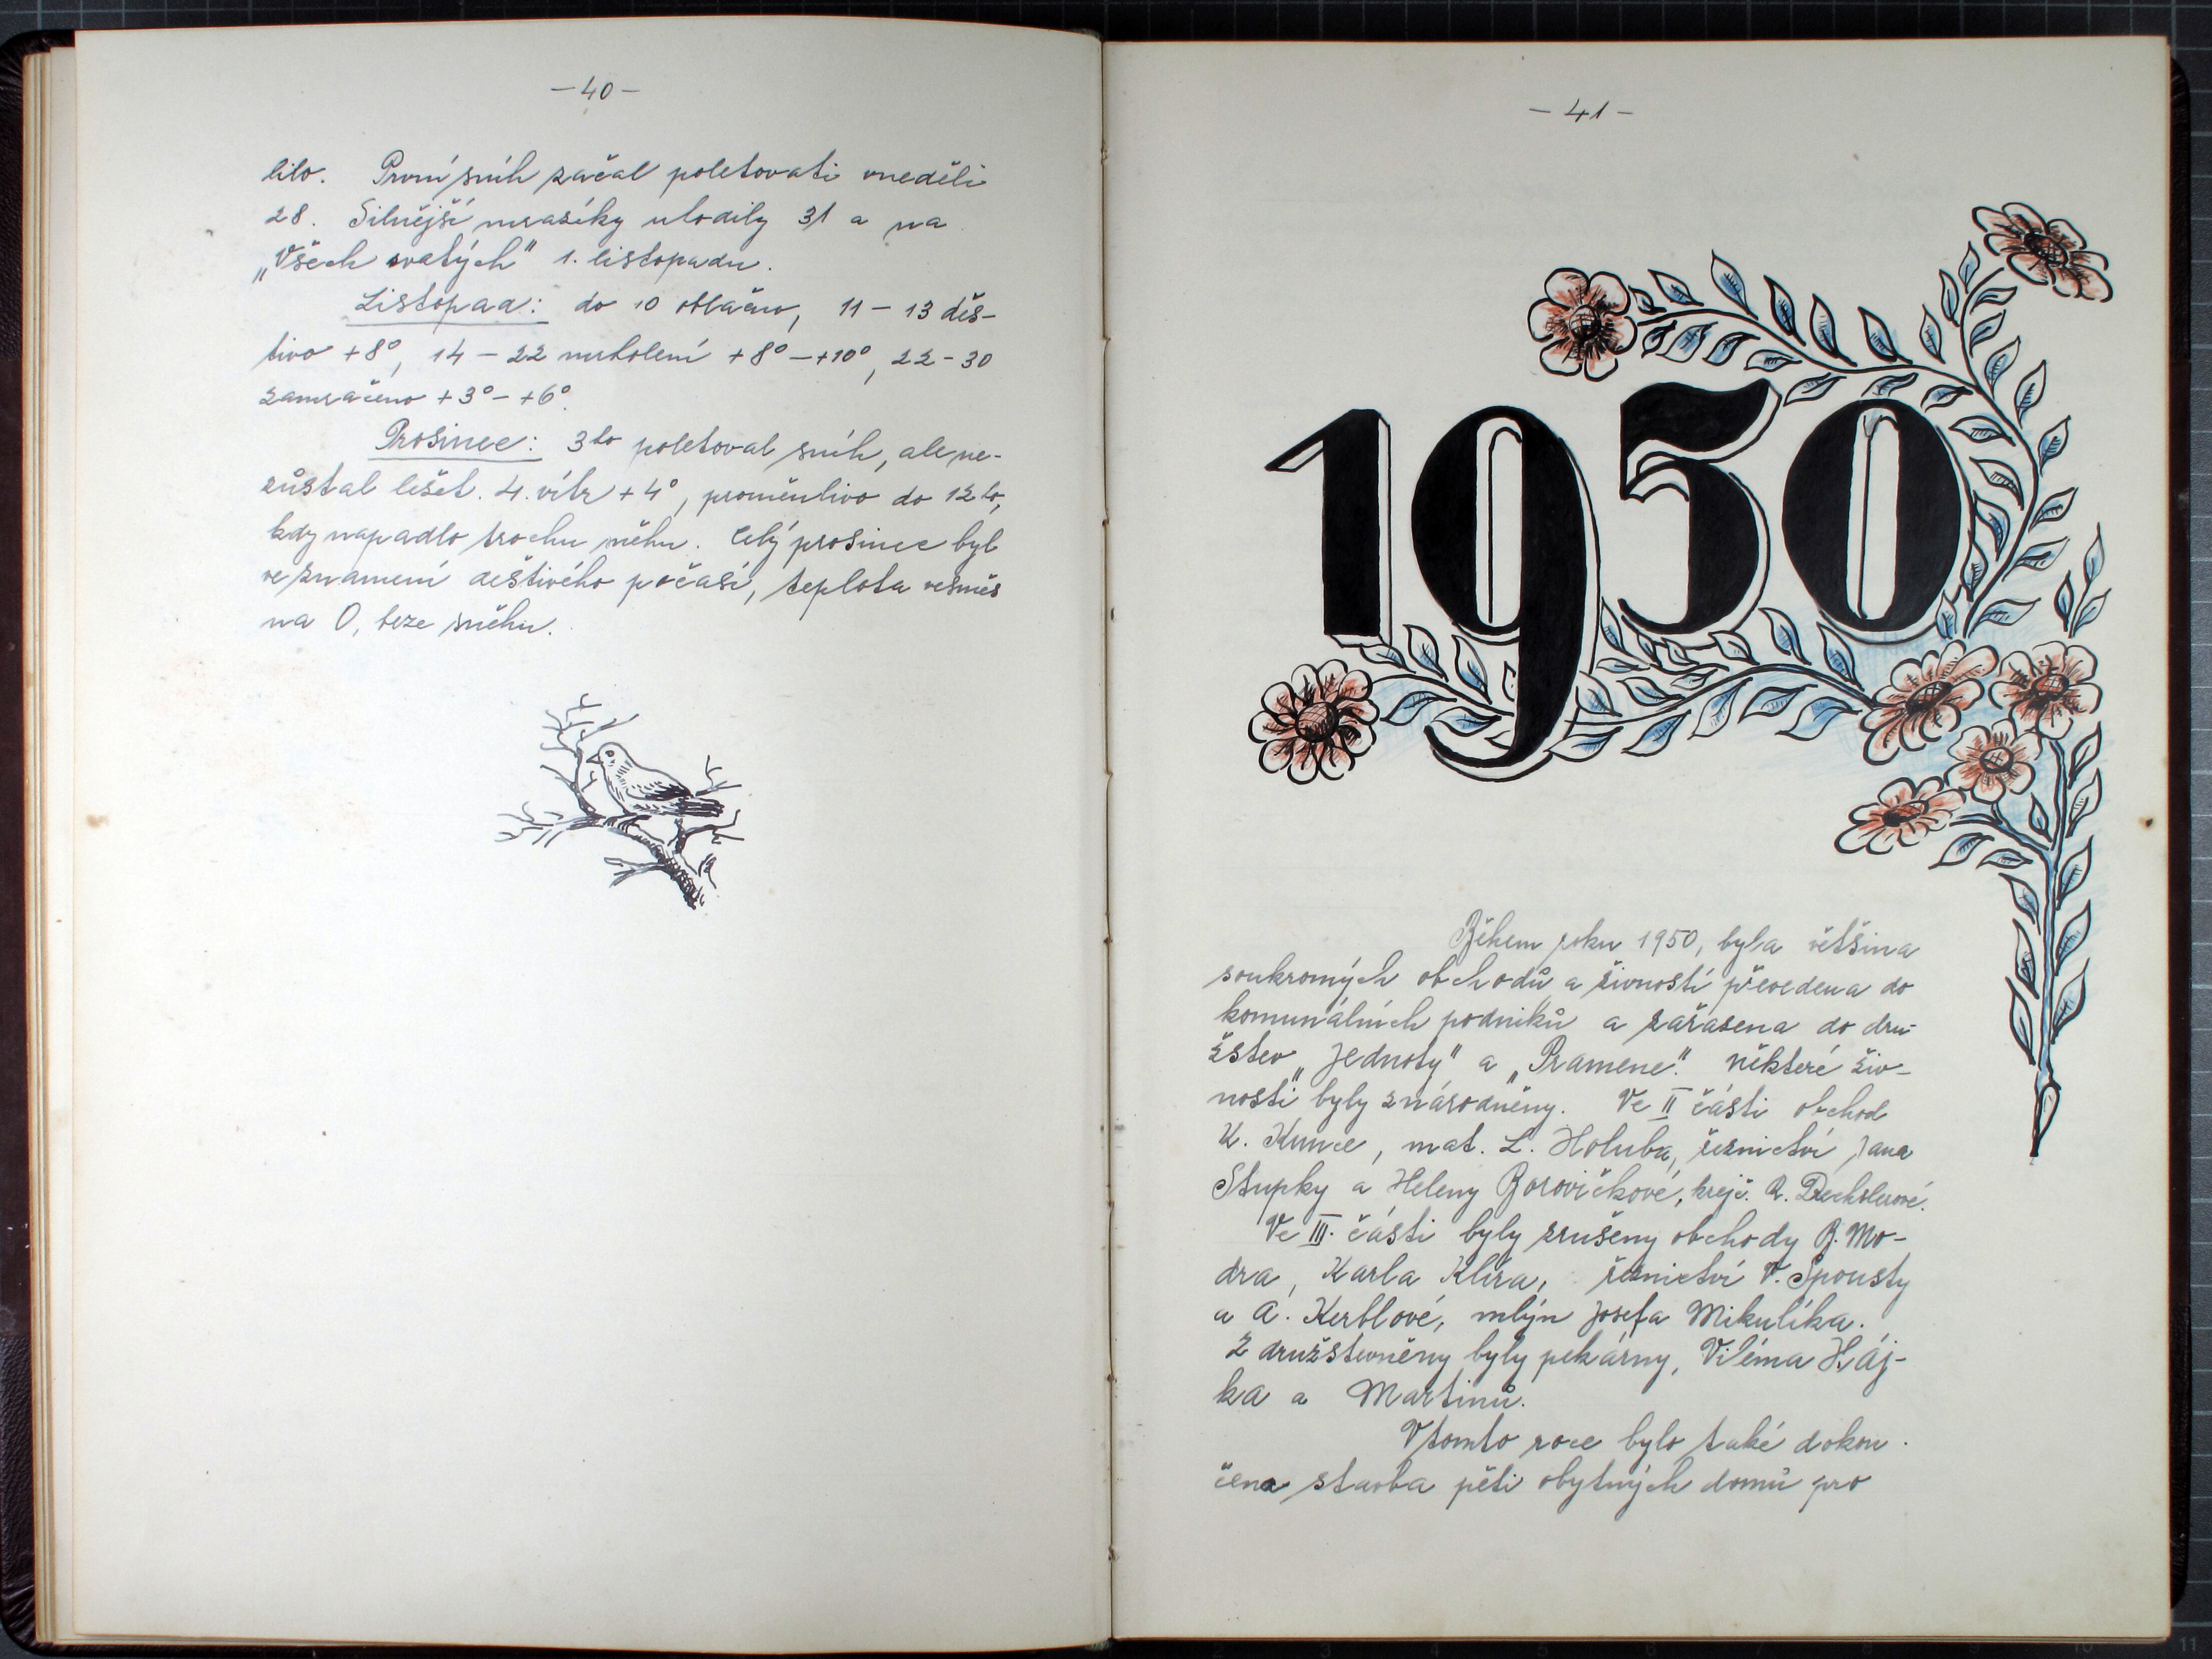 — 40 —
lilo. První sníh začal poletovati v neděli
28. Silnější mrazíky uhodily 31 a na
„Všech svatých" 1. listopadu.
Listopad: do 10 oblačno, 11 – 13 deš-
tivo +8°, 14 – 22 mrholení +8° – +10°, 22 – 30
zamračeno +3° – +6°.
Prosinec: 3ho poletoval sníh, ale ne-
zůstal ležet. 4. vítr +4°, proměnlivo do 12 ho,
kdy napadlo trochu sněhu. Celý prosinec byl
ve znamení deštivého počasí, teplota vesměs
na 0, beze sněhu.
— 41 —
1950
Během roku 1950, byla většina
soukromých obchodů a živností převedena do
komunálních podniků a zařazena do dru-
žstev „Jednoty" a „Pramene". Některé živ-
nosti byly znárodněny. Ve II části obchod
K. Kunce, mat. L. Holuba, řeznictví Jana
Stupky a Heleny Borovičkové, krejč. A. Drechslerové.
Ve III. části byly zrušeny obchody B. Mo-
dra, Karla Klíra, řeznictví V. Spousty
a A. Kerblové, mlýn Josefa Mikulíka.
Z družstevněny byly pekárny, Viléma Háj-
ka a Martinů.
V tomto roce bylo také dokon-
čena stavba pěti obytných domů pro